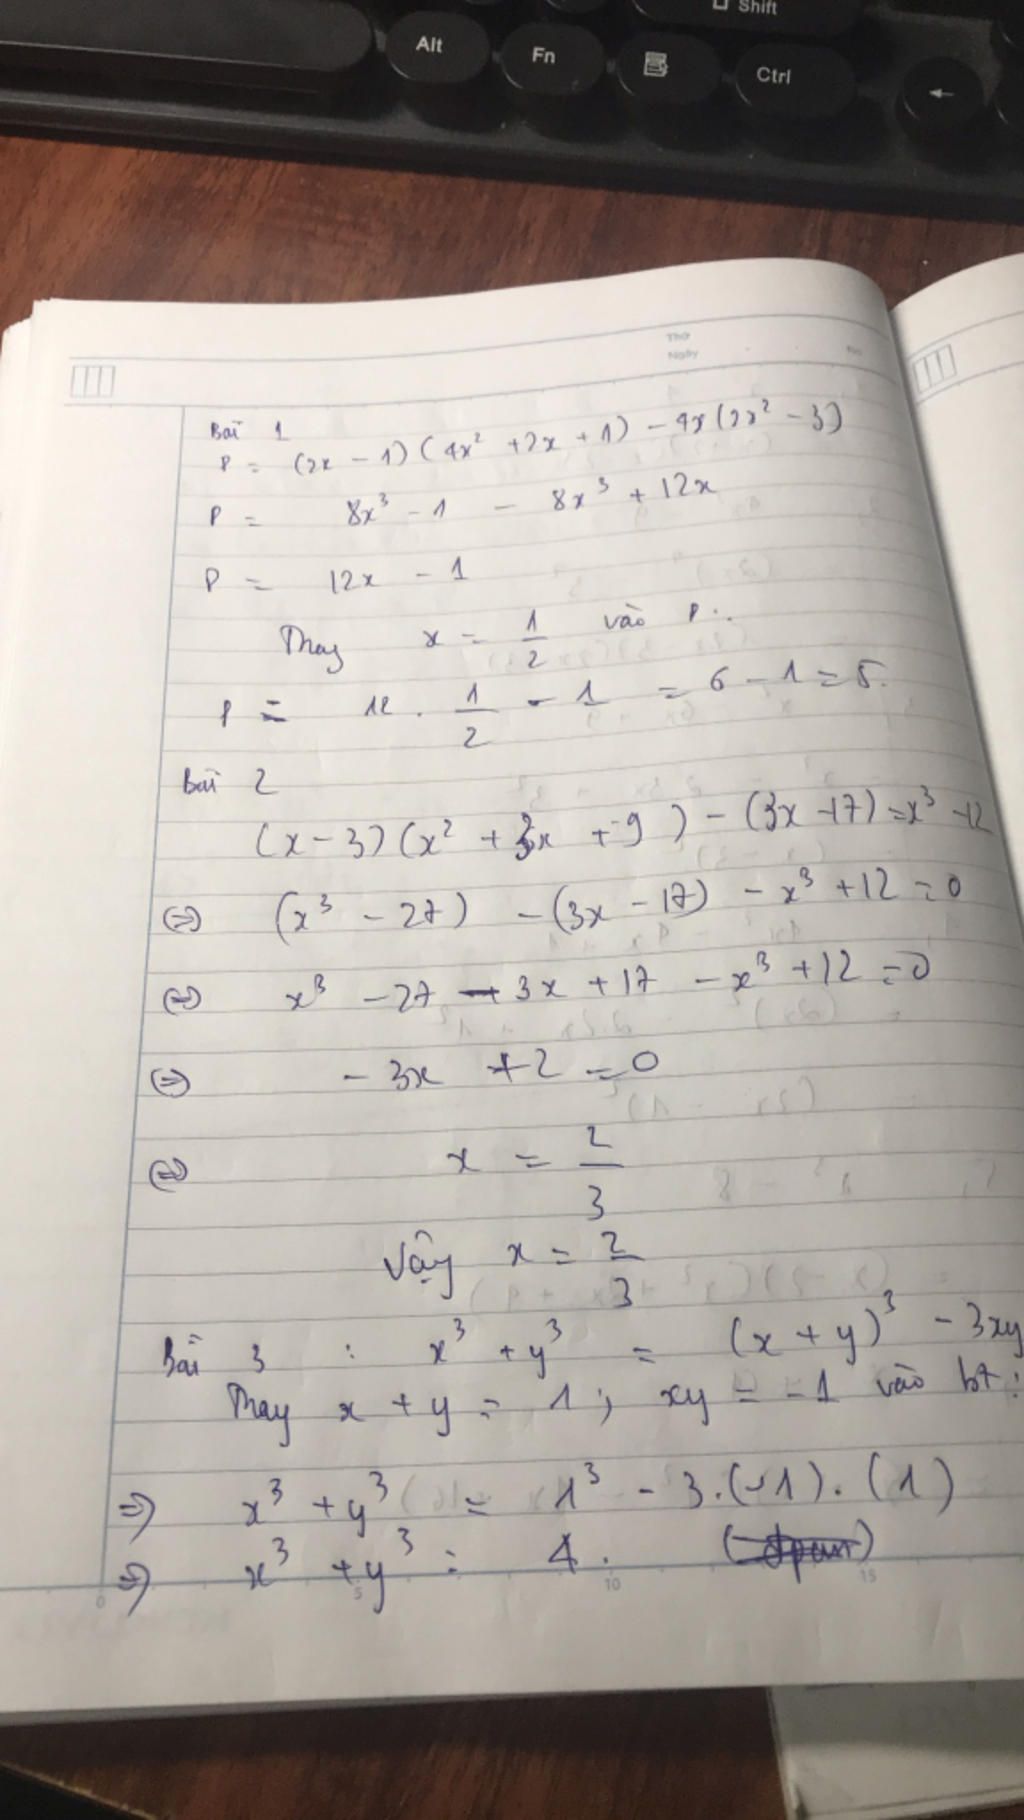 Shift
Alt Fn Ctrl ←
Thứ
Ngày No
Bài 1
P = (2x - 1) (4x² + 2x + 1) - 4x (2x² - 3)
P = 8x³ - 1 - 8x³ + 12x
P = 12x - 1
Thay x = 1/2 vào P:
P = 12 . 1/2 - 1 = 6 - 1 = 5.
Bài 2
(x - 3) (x² + 3x + 9) - (3x - 17) = x³ - 12
⇔ (x³ - 27) - (3x - 17) - x³ + 12 = 0
⇔ x³ - 27 - 3x + 17 - x³ + 12 = 0
⇔ - 3x + 2 = 0
⇔ x = 2/3
Vậy x = 2/3
Bài 3 : x³ + y³ = (x + y)³ - 3xy
Thay x + y = 1 ; xy = -1 vào bt :
⇒ x³ + y³ = 1³ - 3.(-1).(1)
⇒ x³ + y³ = 4.
5 10 15